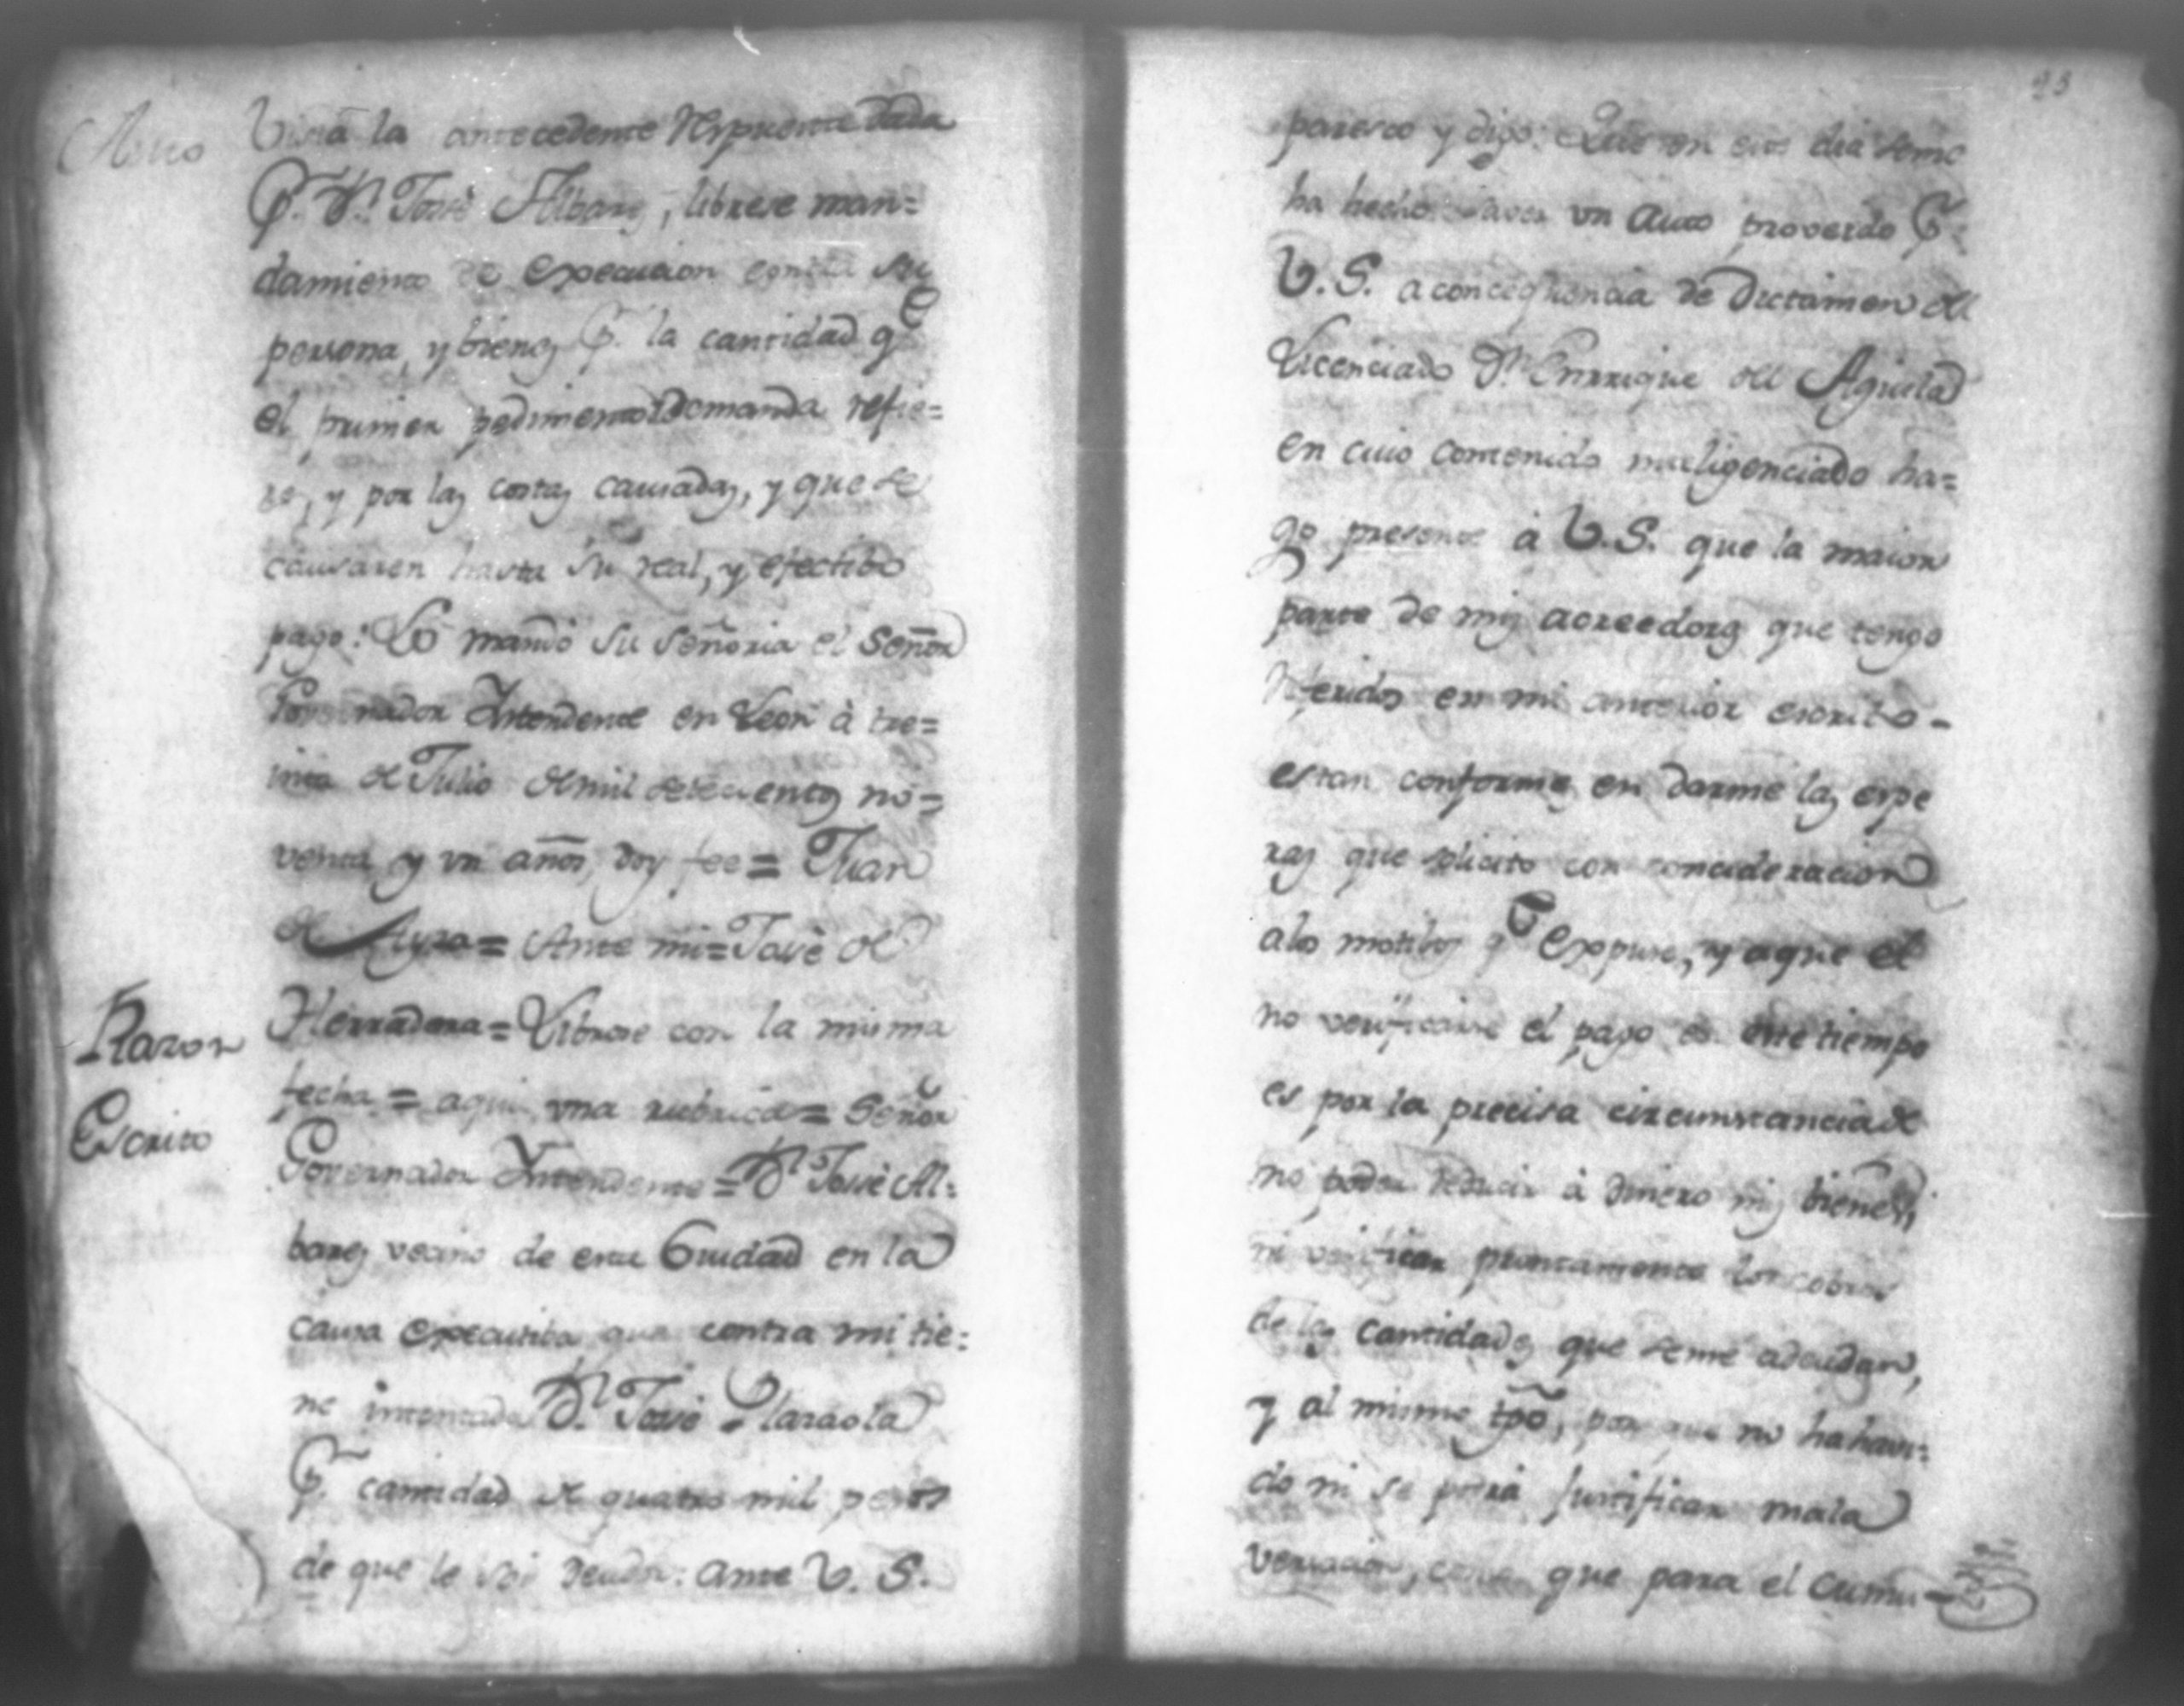 Auto
Vista la antecedente respuesta dada
P.r D.n José Albares, librese man=
damiento de execucion contra su
persona, y bienes P.r la cantidad q.e
el primer pedimento demanda refie=
re, y por las costas causadas, y que se
causaren hasta su real, y efectibo
pago: Lo mandó su señoria el Señor
Governador Yntendente en Leon à tre=
inta de Julio de mil setecientos no=
venta y un años, doy fee = Juan
de Aysa = Ante mi = José de
Herradora = Librose con la misma
Razon
fecha = aqui una rubrica = Señor
Escrito
Governador Yntendente = D.n José Al=
bares vecino de esta Ciudad en la
causa executiba que contra mi tie=
ne intentada D.n José Plaraola
P.r cantidad de quatro mil pesos
de que le soi deudor: ante V. S.
93
paresco y digo: Que en este dia seme
ha hecho saver un auto proveido P.r
V. S. a conceqüencia de Dictamen del
Licenciado D.n Enrrique del Aguila
en cuio contenido inteligenciado ha=
go presente à V. S. que la maior
parte de mis acreedores que tengo
referidos en mi anterior escrito -
estan conformes en darme las espe
ras que solicito con concideracion
alos motibos q.e expuse, y aque el
no verificarse el pago en este tiempo
es por la precisa circunstancia de
no poder reducir à dinero mis bienes,
ni verificar prontamente los cobros
de las cantidades que seme adeudan,
y al mismo tpõ, por que no ha havi=
do ni se podrá justificar mala
versacion, que para el cumu=